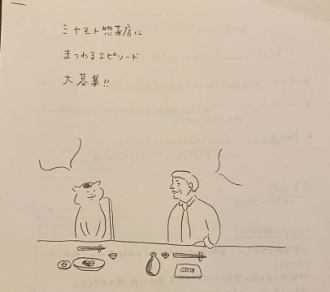 ミヤモト惣菜店に
まつわるエピソード
大募集!!